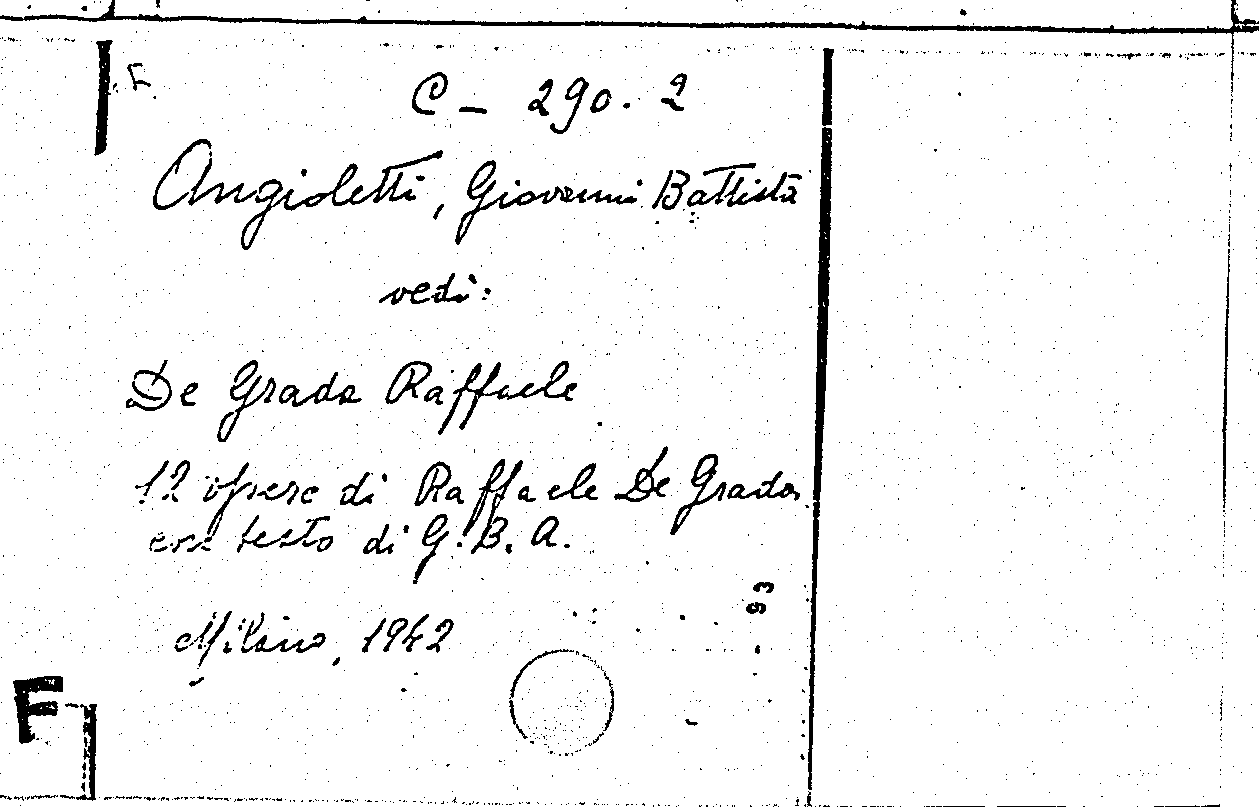 F.
C - 290. 2
Angioletti, Giovanni Battista
vedi:
De Grada Raffaele
12 opere di Raffaele De Grada
con testo di G. B. A.
Milano, 1942
93
F